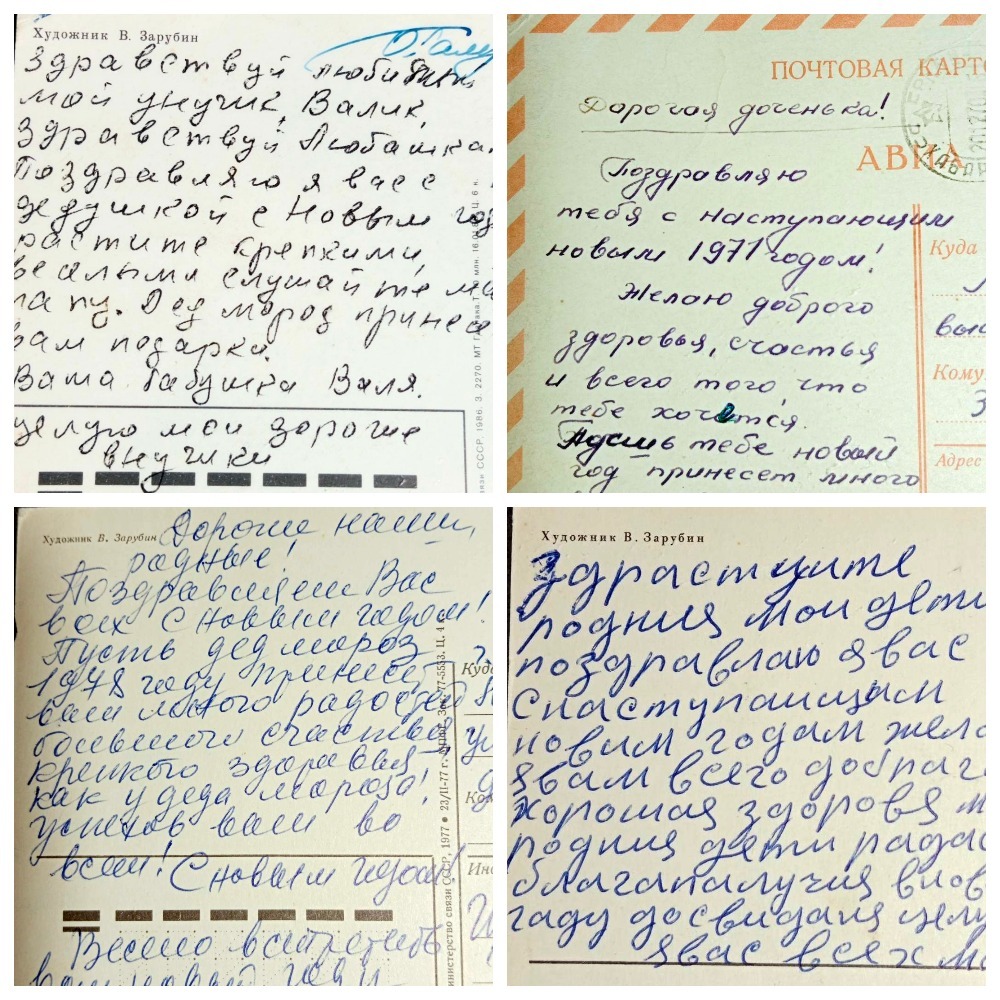 Художник В. Зарубин
Здравствуй
мой унучик, Валик,
Здравствуй Любашка.
Поздравляю я вас с
дедушкой с Новым год
растите крепкими,
веселыми слушайте ма
папу. Дед мороз принесе
вам подарки.
Ваша бабушка Валя.
целую мои дорогие
внучики
связи СССР, 1986. З. 2270. МТ Гознака.
ПОЧТОВАЯ КАРТО
Дорогая доченька!
АВИА
Поздравляю
тебя с наступающим
новым 1971 годом!
Желаю доброго
здоровья, счастья
и всего того что
тебе хочется.
Пусть тебе новый
год принесет много
Куда
выс
Кому
З
Адрес
Художник В. Зарубин
Дорогие наши,
родные!
Поздравляем Вас
всех с Новым годом!
Пусть дед мороз
1978 году принесёт
вам много радостей
большого счастья,
крепкого здоровья
как у деда мороза!
успехов вам во
всем! С новым годом!
Весело встретить
вам новый год и
Министерство связи СССР, 1977 • 23/II-77 г.
Куда
Ко
Инд
Художник В. Зарубин
Здраствуите
родния мои дети
поздравлаю я вас
снаступаищим
новым годам жела
явам всего добрага
хорошая здоровя м
родния дети радас
благапалучия внов
гаду досвиданя целу
явас всех мо